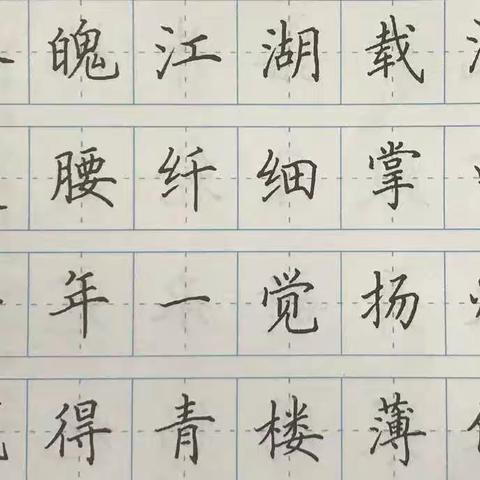 魄江湖载
腰纤细掌
年一觉扬
得青楼薄